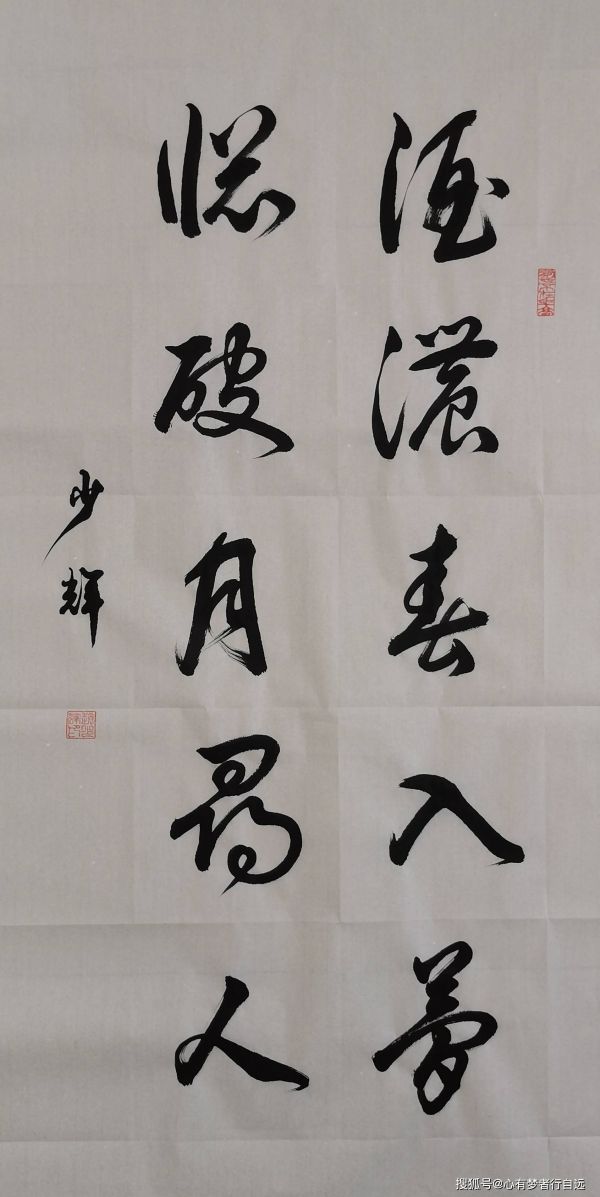 酒濃春入夢
牕破月尋人
少輝
搜狐号@心有梦者行自远